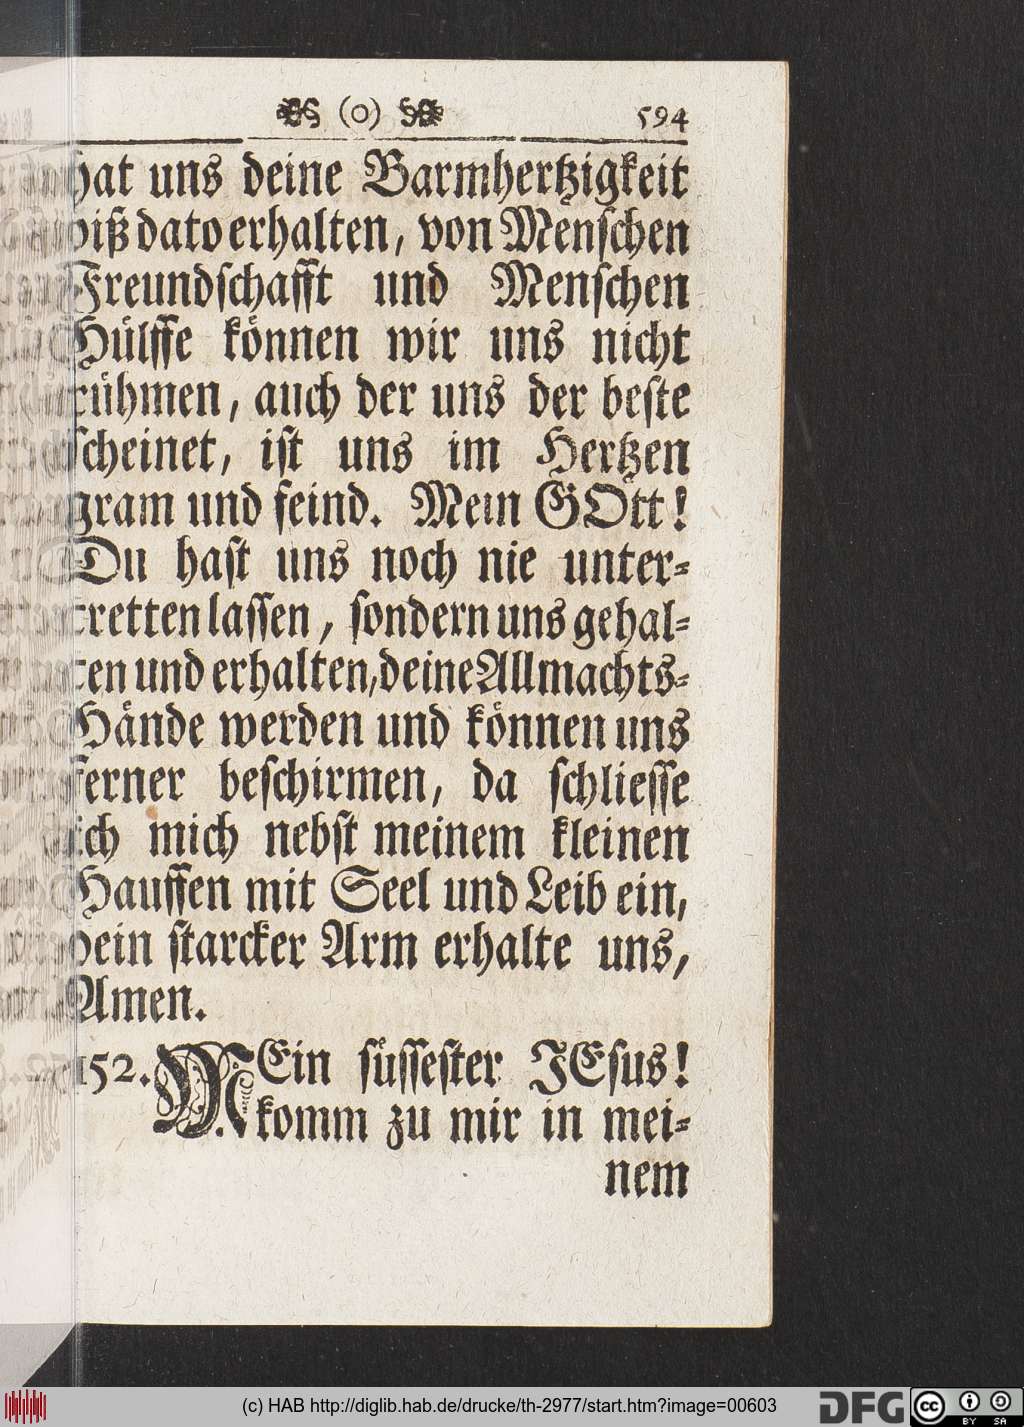 (o) 594
hat uns deine Barmhertzigkeit
biß dato erhalten, von Menschen
Freundschafft und Menschen
Hülffe können wir uns nicht
rühmen, auch der uns der beste
scheinet, ist uns im Hertzen
gram und feind. Mein GOtt!
Du hast uns noch nie unter-
tretten lassen, sondern uns gehal-
ten und erhalten, deine Allmachts-
Hände werden und können uns
ferner beschirmen, da schliesse
ich mich nebst meinem kleinen
Hauffen mit Seel und Leib ein,
dein starcker Arm erhalte uns,
Amen.
152. MEin süssester JEsus!
komm zu mir in mei-
nem
(c) HAB http://diglib.hab.de/drucke/th-2977/start.htm?image=00603
DFG
cc BY SA